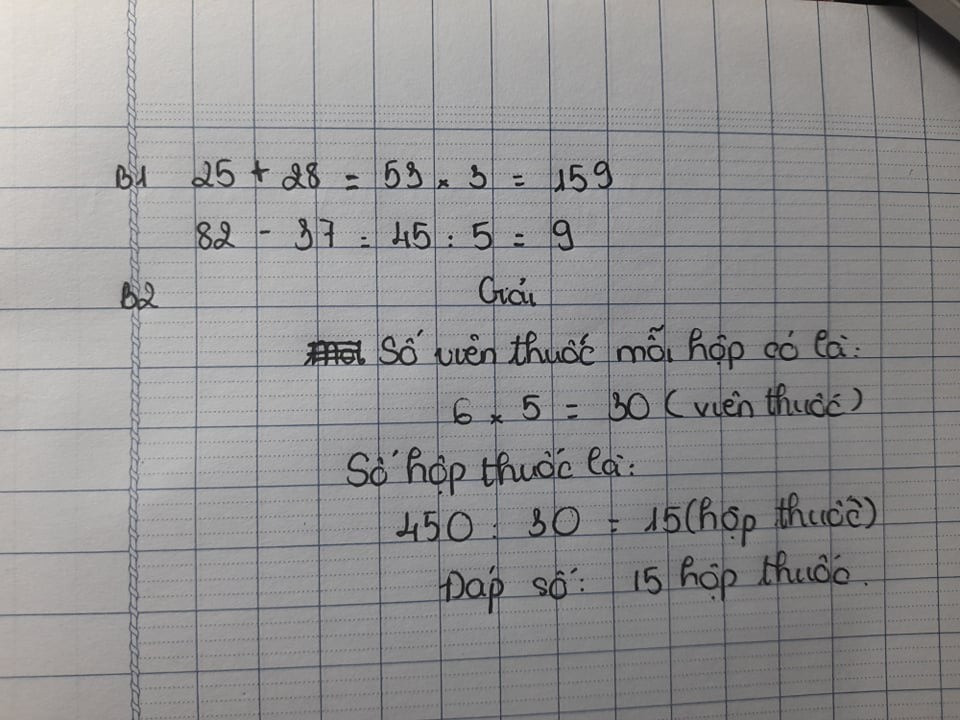 B1 25 + 28 = 53 x 3 = 159
82 - 37 = 45 : 5 = 9
B2 Giải
Số viên thuốc mỗi hộp có là:
6 x 5 = 30 (viên thuốc)
Số hộp thuốc là:
450 : 30 = 15 (hộp thuốc)
Đáp số: 15 hộp thuốc.